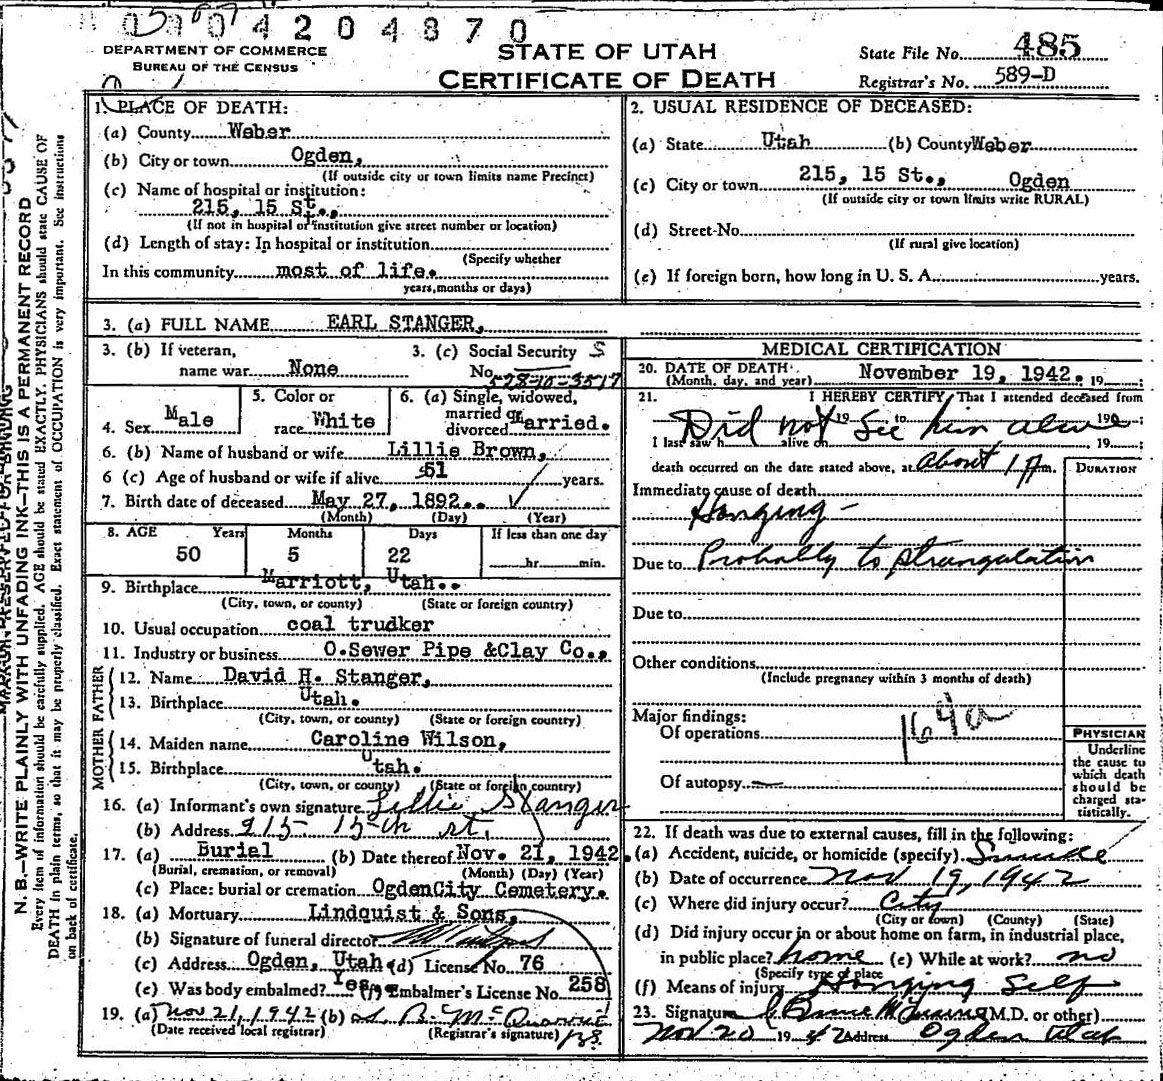 0 4 2 0 4 8 7 0
DEPARTMENT OF COMMERCE
BUREAU OF THE CENSUS
STATE OF UTAH
CERTIFICATE OF DEATH
State File No. 485
Registrar's No. 589-D
N. B.—WRITE PLAINLY WITH UNFADING INK—THIS IS A PERMANENT RECORD
Every item of information should be carefully supplied. AGE should be stated EXACTLY. PHYSICIANS should state CAUSE OF
DEATH in plain terms, so that it may be properly classified. Exact statement of OCCUPATION is very important. See instructions
on back of certificate.
1. PLACE OF DEATH:
(a) County Weber
(b) City or town Ogden,
(If outside city or town limits name Precinct)
(c) Name of hospital or institution:
215, 15 St.,
(If not in hospital or institution give street number or location)
(d) Length of stay: In hospital or institution
(Specify whether
In this community most of life.
years, months or days)
2. USUAL RESIDENCE OF DECEASED:
(a) State Utah (b) County Weber
(c) City or town 215, 15 St., Ogden
(If outside city or town limits write RURAL)
(d) Street No.
(If rural give location)
(e) If foreign born, how long in U. S. A. years.
3. (a) FULL NAME EARL STANGER,
3. (b) If veteran,
name war None
3. (c) Social Security S
No. 528-10-3517
4. Sex Male
5. Color or
race White
6. (a) Single, widowed,
married or
divorced Married.
6. (b) Name of husband or wife Lillie Brown,
6 (c) Age of husband or wife if alive 51 years.
7. Birth date of deceased May 27, 1892.
(Month) (Day) (Year)
8. AGE Years Months Days If less than one day
50 5 22 hr. min.
9. Birthplace Marriott, Utah..
(City, town, or county) (State or foreign country)
10. Usual occupation coal trudker
11. Industry or business O.Sewer Pipe &Clay Co.,
FATHER
12. Name David H. Stanger,
13. Birthplace Utah.
(City, town, or county) (State or foreign country)
MOTHER
14. Maiden name Caroline Wilson,
15. Birthplace Utah.
(City, town, or county) (State or foreign country)
16. (a) Informant's own signature Lillie Stanger
(b) Address 215- 15th st.
17. (a) Burial (b) Date thereof Nov. 21, 1942.
(Burial, cremation, or removal) (Month) (Day) (Year)
(c) Place: burial or cremation OgdenCity Cemetery.
18. (a) Mortuary Lindquist & Sons,
(b) Signature of funeral director
(c) Address Ogden, Utah. (d) License No. 76
(e) Was body embalmed? Yes. (f) Embalmer's License No. 258
19. (a) Nov 21, 1942 (b)
(Date received local registrar) (Registrar's signature)
MEDICAL CERTIFICATION
20. DATE OF DEATH
(Month, day, and year) November 19, 1942. 19
21. I HEREBY CERTIFY, That I attended deceased from
Did not 19 to see him alive 19
I last saw h alive on 19
death occurred on the date stated above, at about 1 P m.
DURATION
Immediate cause of death
Hanging -
Due to Probably to strangulation
Due to
Other conditions
(Include pregnancy within 3 months of death)
Major findings:
Of operations
164a
Of autopsy —
PHYSICIAN
Underline
the cause to
which death
should be
charged sta-
tistically.
22. If death was due to external causes, fill in the following:
(a) Accident, suicide, or homicide (specify) Suicide
(b) Date of occurrence Nov 19, 1942
(c) Where did injury occur? City
(City or town) (County) (State)
(d) Did injury occur in or about home on farm, in industrial place,
in public place? home (e) While at work? no
(Specify type of place
(f) Means of injury Hanging Self
23. Signature (M.D. or other)
Nov 20 19 42 Address Ogden Utah